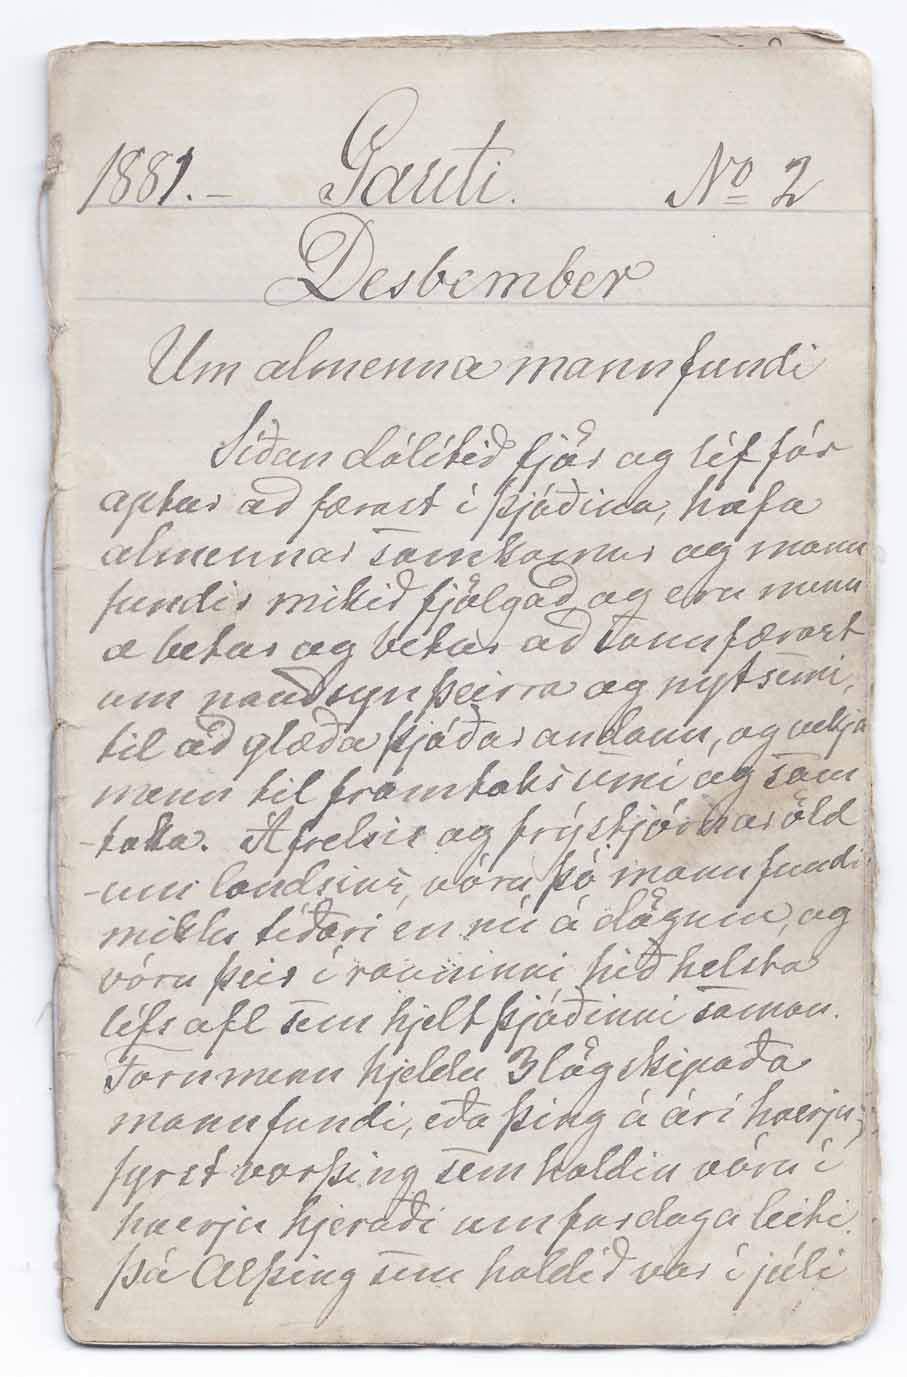 1881.- Gauti. No 2
Desbember
Um almenna mannfundi
Síðan dálítið fjör og líf fór
aptur að færast í þjóðina, hafa
almennar samkomur og mann
fundir mikið fjölgað og eru menn
æ betur og betur að sannfærast
um nauðsyn þeirra og nytsemi,
til að glæða þjóðar andann, og vekja
menn til framtakssemi og sam
-taka. Á frelsis og frýstjórnar öld
-um landsins, vóru þó mannfundir
miklu tíðari en nú á dögum, og
vóru þeir í rauninni hið helsta
lífsafl sem hjelt þjóðinni saman.
Fornmenn hjeldu 3 lögskipaða
mannfundi, eða þing á ári hverju;
fyrst vorþing sem haldin vóru í
hverju hjeraði um fardaga leiti.
þá Alþing sem haldið var í júli